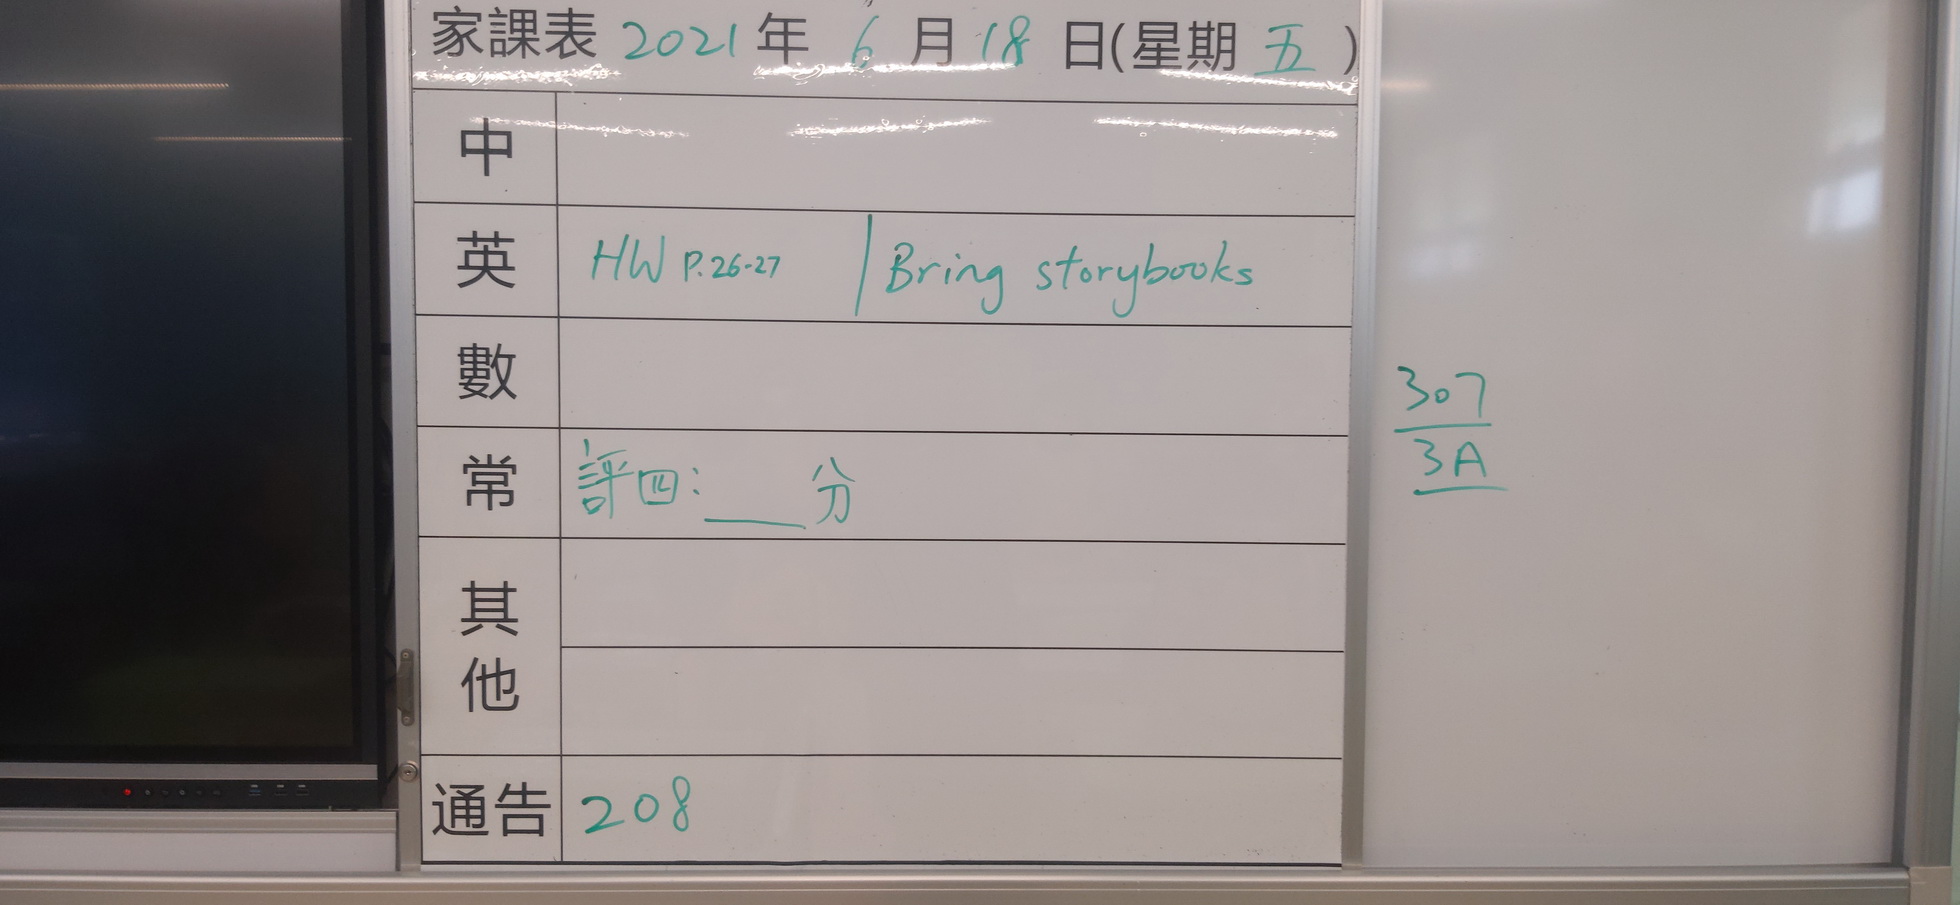 家課表 2021 年 6 月 18 日(星期 五 )
中
英 HW P.26-27 | Bring storybooks
數
常 評四: ___ 分
其他
通告 208
307
3A